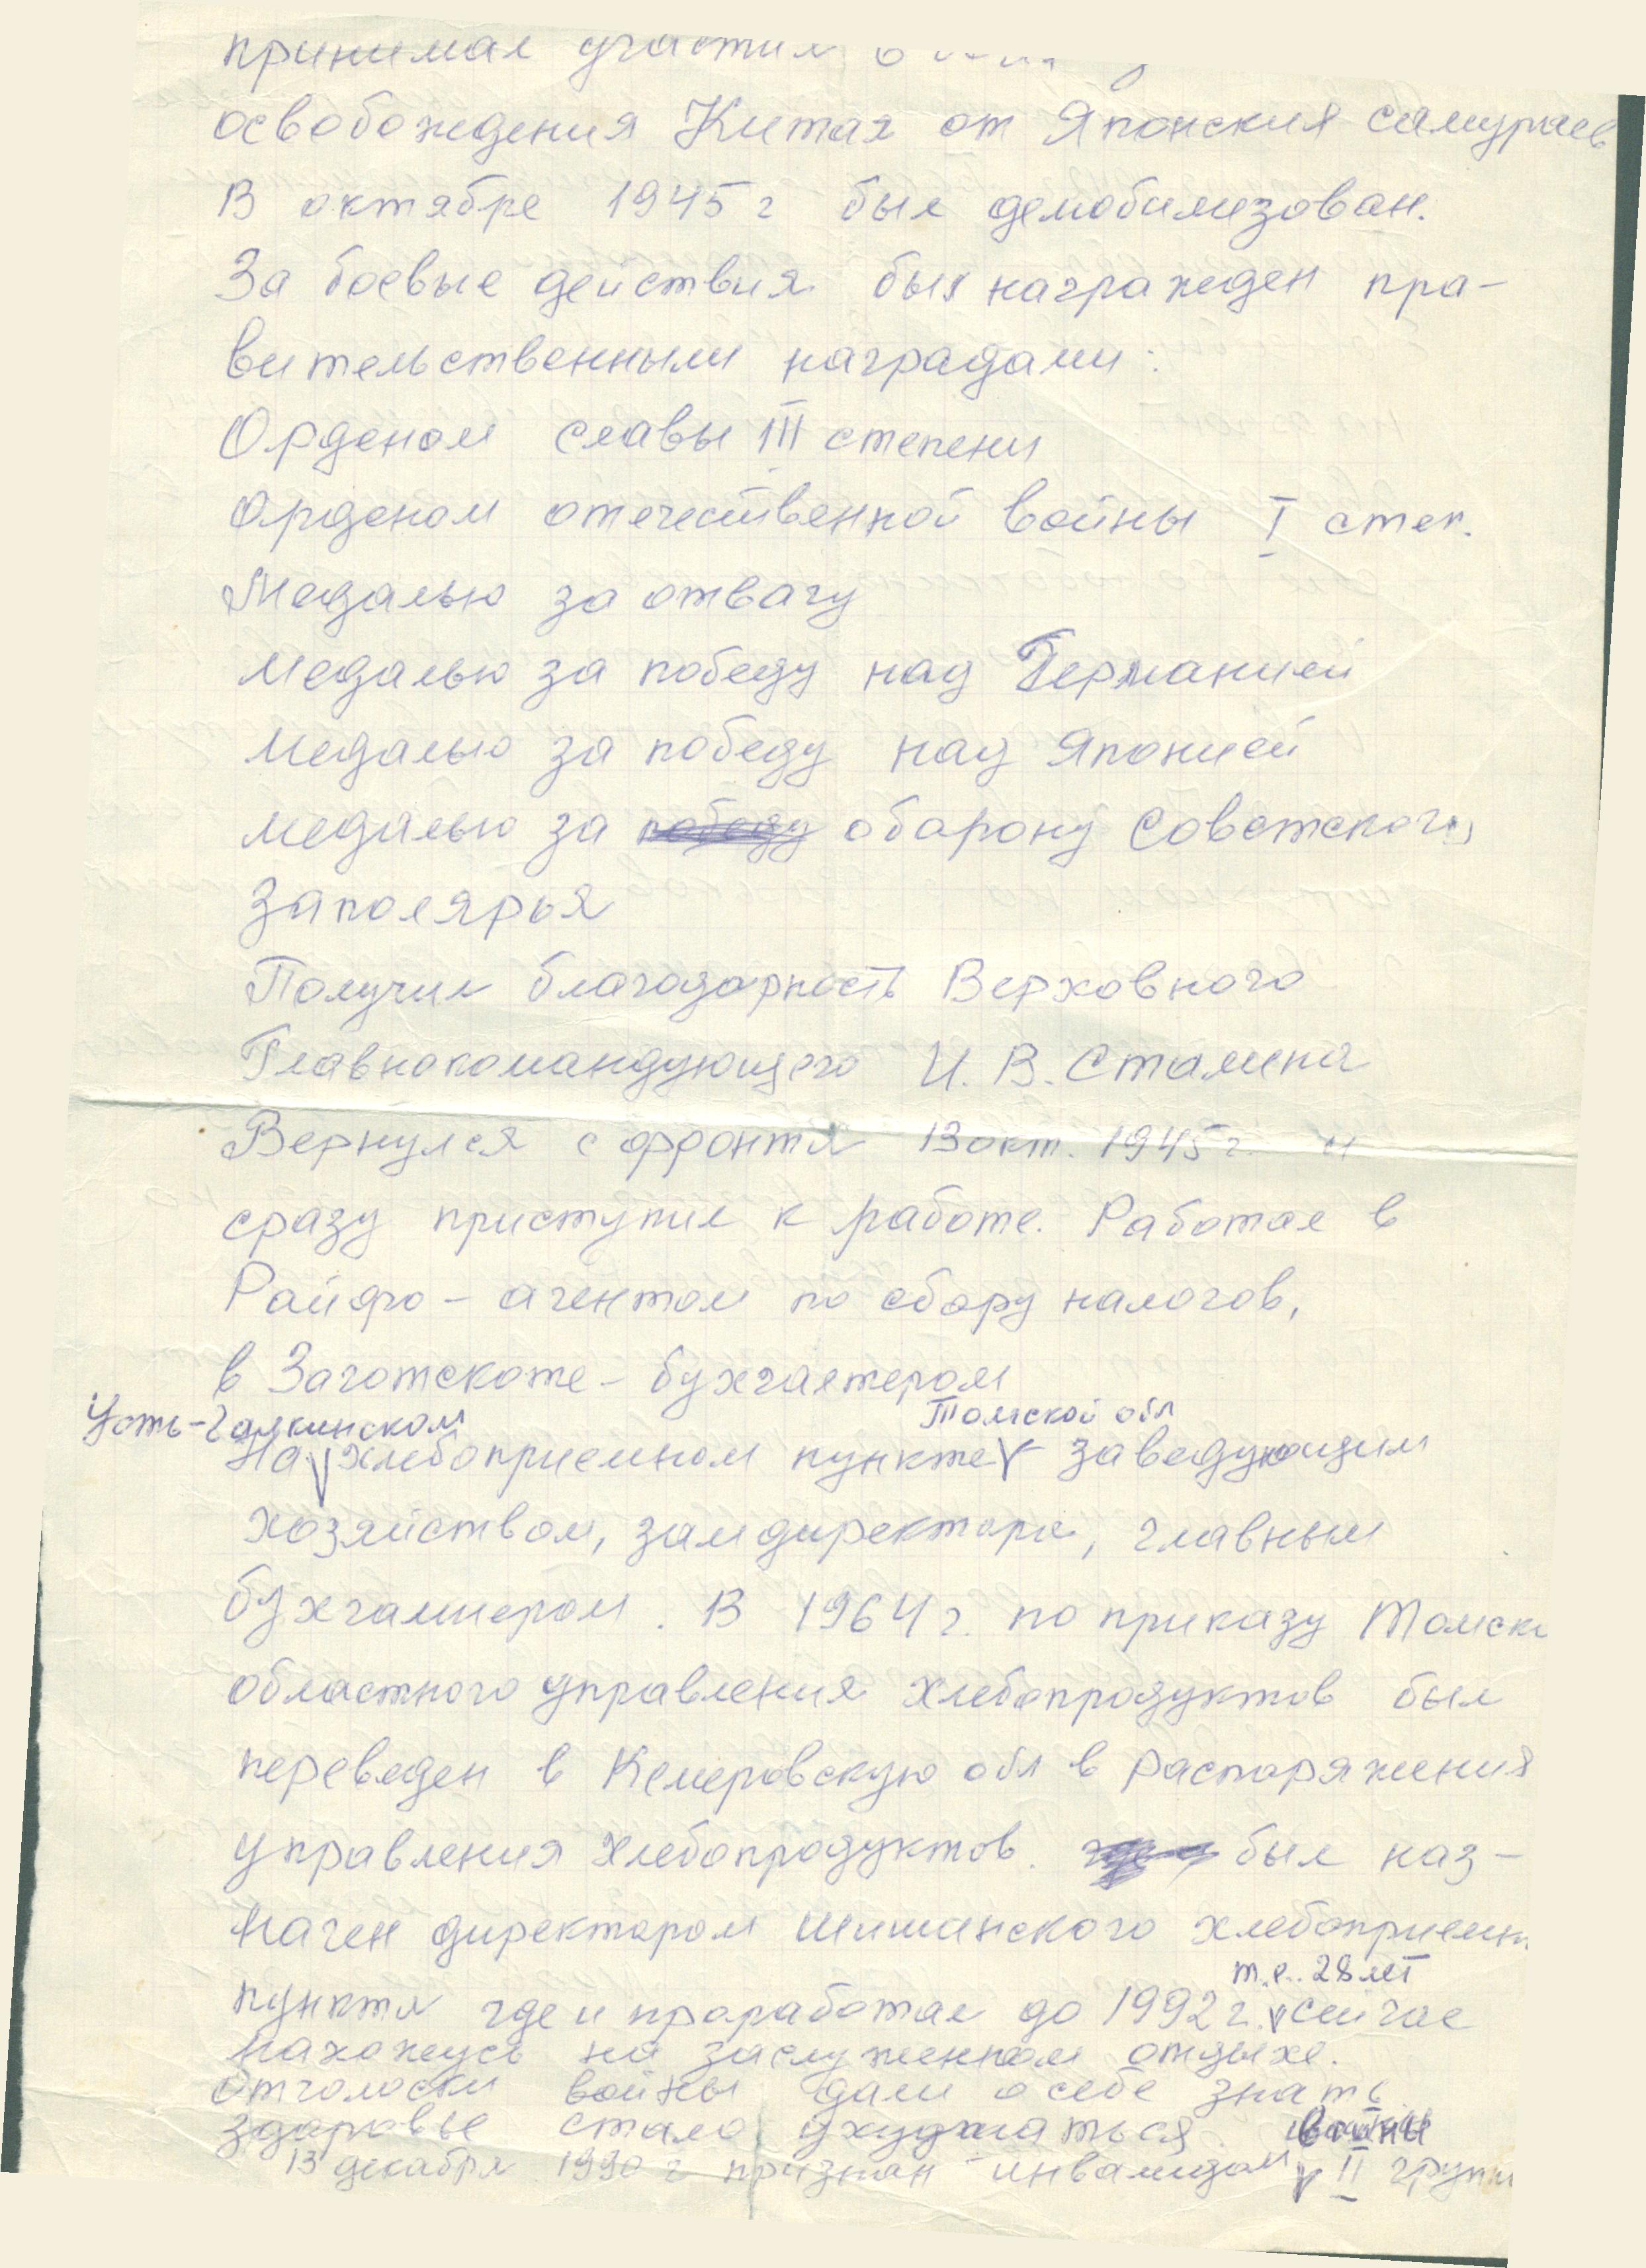 принимал участия
освобождения Китая от Японския самураев
В октябре 1945 г был демобилизован.
За боевые действия был награжден пра-
вительственными наградами:
Орденом славы III степени
Орденом отечественной войны I степ.
Медалью за отвагу
Медалью за победу над Германией
Медалью за победу над Японией
медалью за победу обарону Советского
Заполярья
Получил благодарность Верховного
Главнокомандующего И. В. Сталина
Вернулся с фронта 13 окт. 1945 г. и
сразу приступил к работе. Работал в
Райфо - агентом по сбору налогов,
в Заготскоте - бухгалтером
Усть-Галкинском Томской обл
На хлебоприемном пункте заведующим
хозяйством, замдиректора, главным
бухгалтером. В 1964 г. по приказу Томск
областного управления хлебопродуктов был
переведен в Кемеровскую обл в распоряжения
управления хлебопродуктов. был наз-
начен директором Шишинского хлебоприемн
т.е. 28 лет
пункта где и проработал до 1992 г. сейчас
нахожусь на заслуженном отдыхе.
Отголоски войны дали о себе знать
здоровье стало ухудшаться. войны
13 декабря 1990 г признан инвалидом II групп